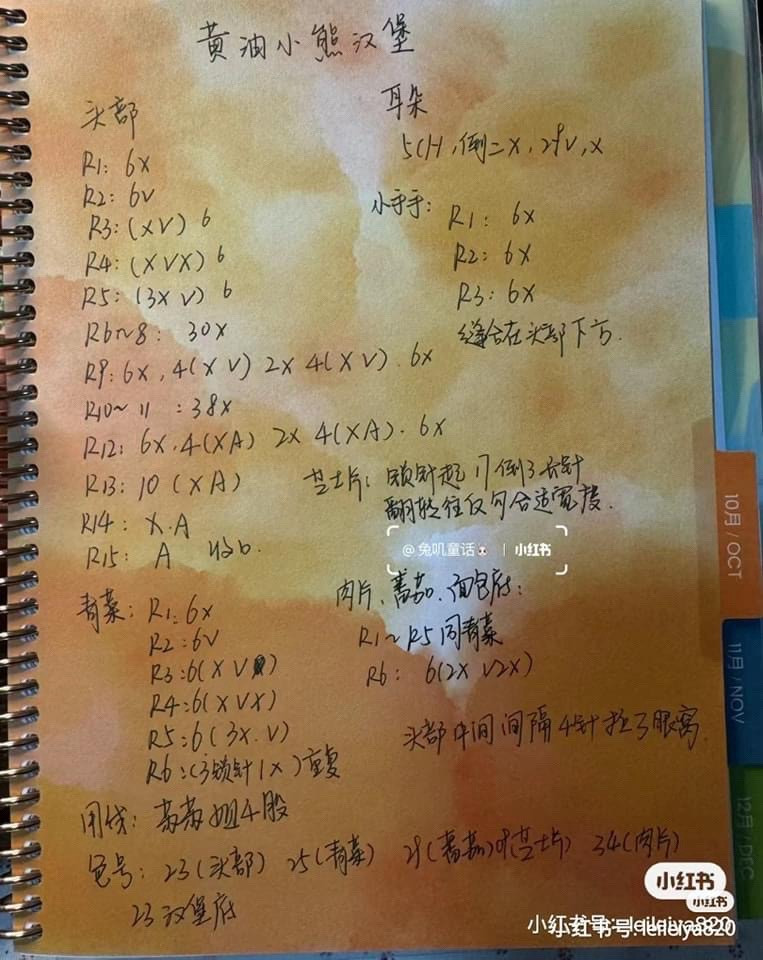 黄油小熊汉堡
头部
R1: 6X
R2: 6V
R3: (XV) 6
R4: (XVX) 6
R5: (3X V) 6
R6~8: 30X
R9: 6X, 4(XV) 2X 4(XV). 6X
R10~11: 38X
R12: 6X, 4(XA) 2X 4(XA). 6X
R13: 10(XA)
R14: X.A
R15: A 收口.
耳朵
5CH, 倒二X, 2个V, X
小手手:
R1: 6X
R2: 6X
R3: 6X
缝合在头部下方.
芝士片: 锁针起17倒3长针
翻转往返勾合适宽度.
@兔叽童话 | 小红书
青菜: R1: 6X
R2: 6V
R3: 6(XV)
R4: 6(XVX)
R5: 6(3X.V)
R6: (3锁针1X)重复
肉片、番茄、面包底:
R1~R5同青菜
R6: 6(2XV2X)
头部中间间隔4针拉了眼窝.
用线: 苏苏姐4股
色号: 23(头部) 25(青菜) 29(番茄) 09(芝士片) 34(肉片)
23汉堡底
10月/OCT
11月/NOV
12月/DEC
小红书
小红书
小红书号: leileiya820
小红书号: leileiya820